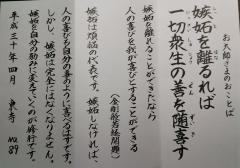 お大師さまのおことば
嫉妬を離るれば
一切衆生の善を随喜す
嫉妬を離れることができたなら
人の喜びを我が喜びとすることができる
(金剛般若経開題)
嫉妬は煩悩の代表です。嫉妬しなければ、
人の喜びも自分の喜のように喜べるはずです。
しかし、嫉妬は完全にはなくなりません。
嫉妬を自分の励みに変えていくのが修行です。
平成三十年四月 東寺 No.89